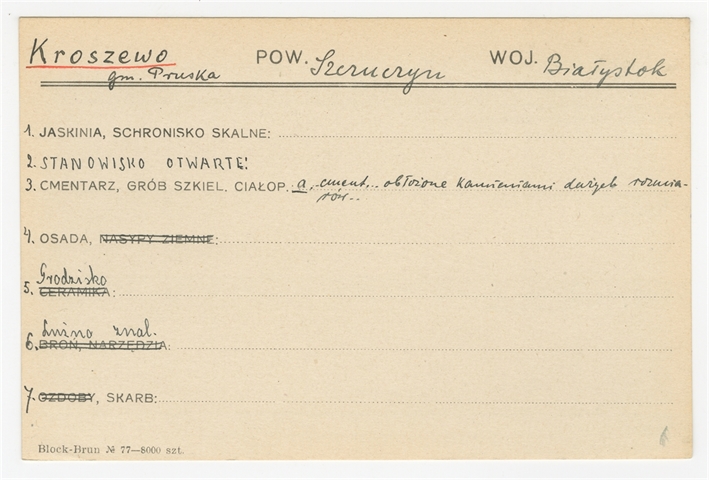 Kroszewo POW. Szczuczyn WOJ. Białystok
gm. Pruska
1. JASKINIA, SCHRONISKO SKALNE:
2. STANOWISKO OTWARTE:
3. CMENTARZ, GRÓB SZKIEL. CIAŁOP. a, cment... obłożone kamieniami dużych rozmia-
rów..
4. OSADA, NASYPY ZIEMNE:
Grodzisko
5. CERAMIKA:
Luźno znal.
6. BROŃ, NARZĘDZIA:
7. OZDOBY, SKARB:
Block-Brun № 77—8000 szt.